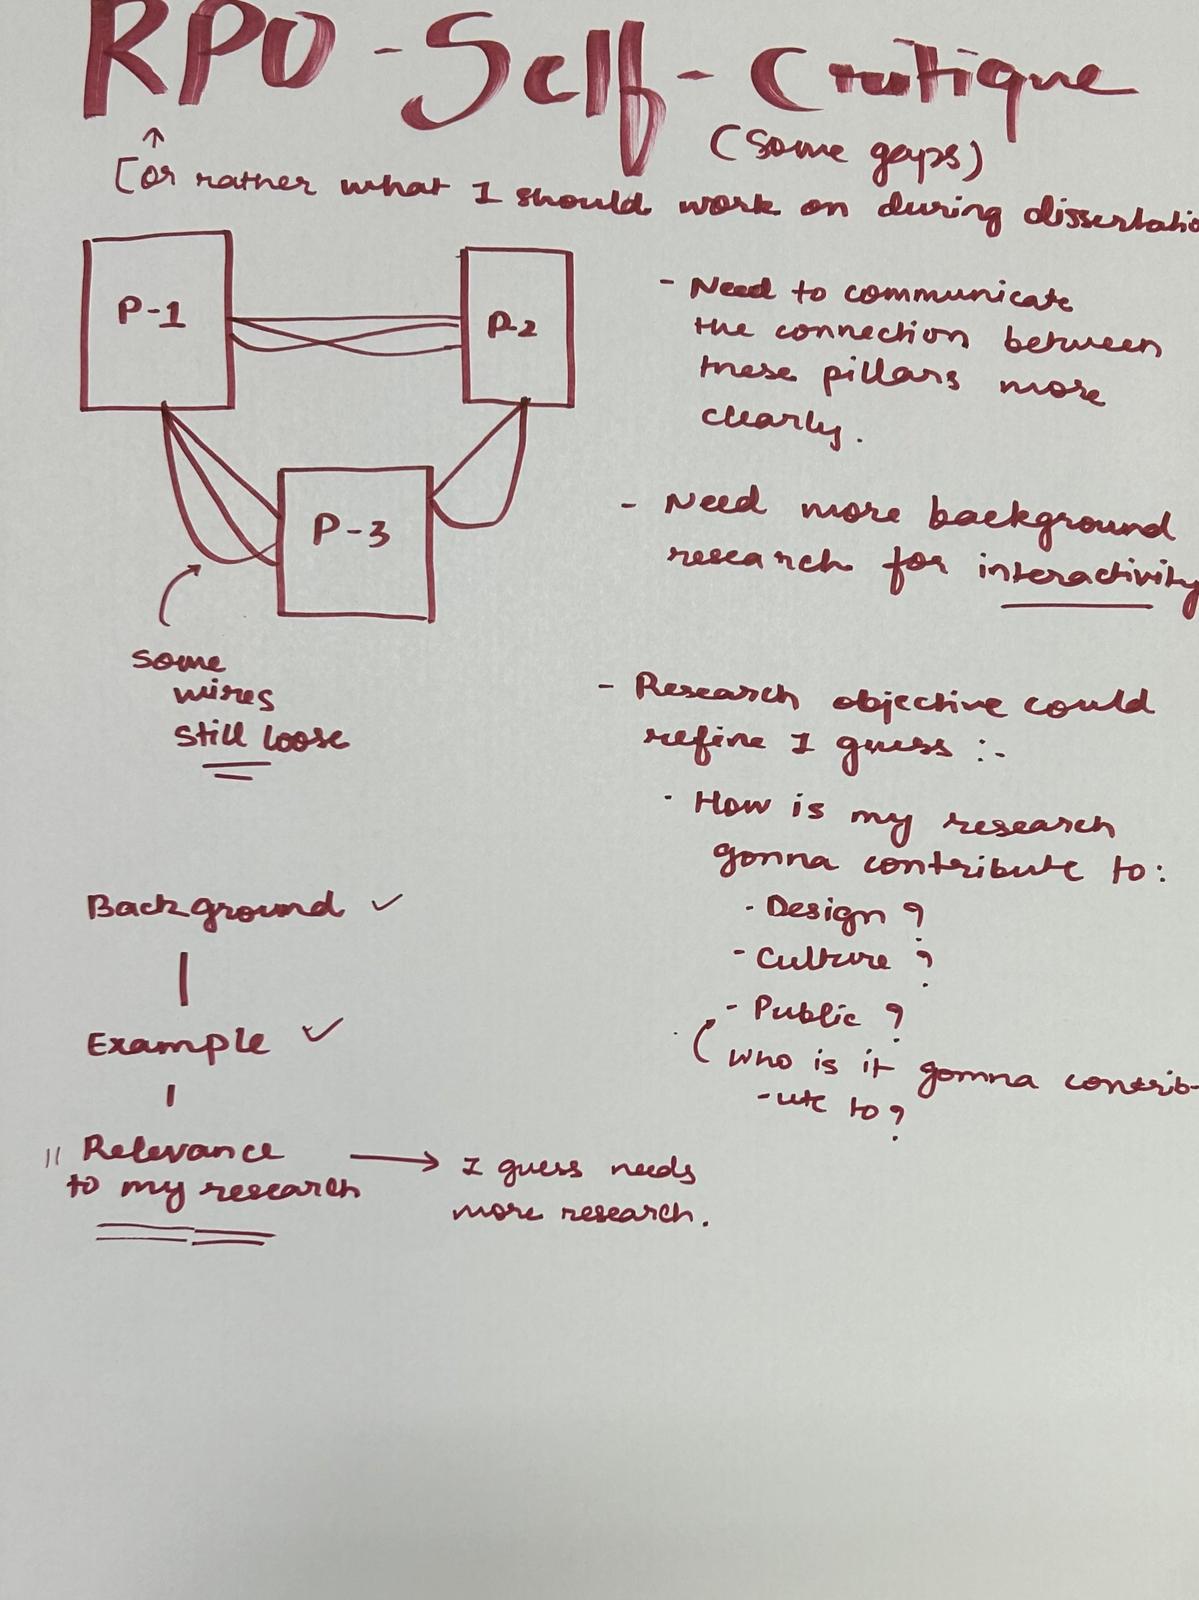 RPO - Self - Critique
(some gaps)
[or rather what I should work on during dissertatio
P-1
P-2
P-3
some
wires
still loose
- Need to communicate
the connection between
these pillars more
clearly.
- Need more background
research for interactivity
- Research objective could
refine I guess :-
- How is my research
gonna contribute to:
- Design ?
- Culture ?
- Public ?
who is it gonna contrib-
-ute to?
Background ✓
Example ✓
" Relevance
to my research
→ I guess needs
more research.